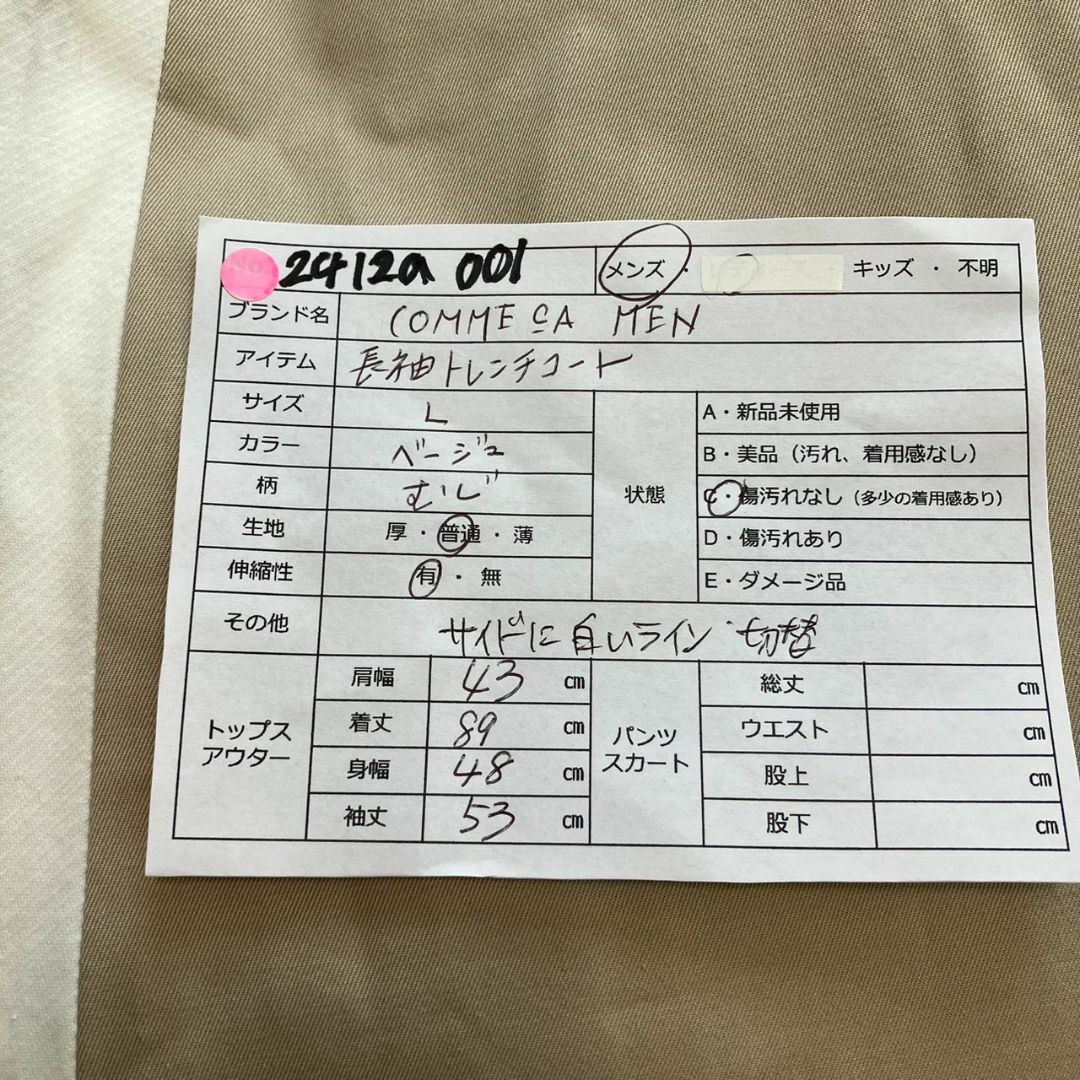 No. 2412a 001 メンズ ・ キッズ ・ 不明
ブランド名 COMME ÇA MEN
アイテム 長袖トレンチコート
サイズ L
カラー ベージュ
柄 むじ
生地 厚 ・ 普通 ・ 薄
伸縮性 有 ・ 無
状態
A・新品未使用
B・美品（汚れ、着用感なし）
C・傷汚れなし（多少の着用感あり）
D・傷汚れあり
E・ダメージ品
その他 サイドに白いライン・切替
トップス
アウター
肩幅 43 cm
着丈 89 cm
身幅 48 cm
袖丈 53 cm
パンツ
スカート
総丈 cm
ウエスト cm
股上 cm
股下 cm